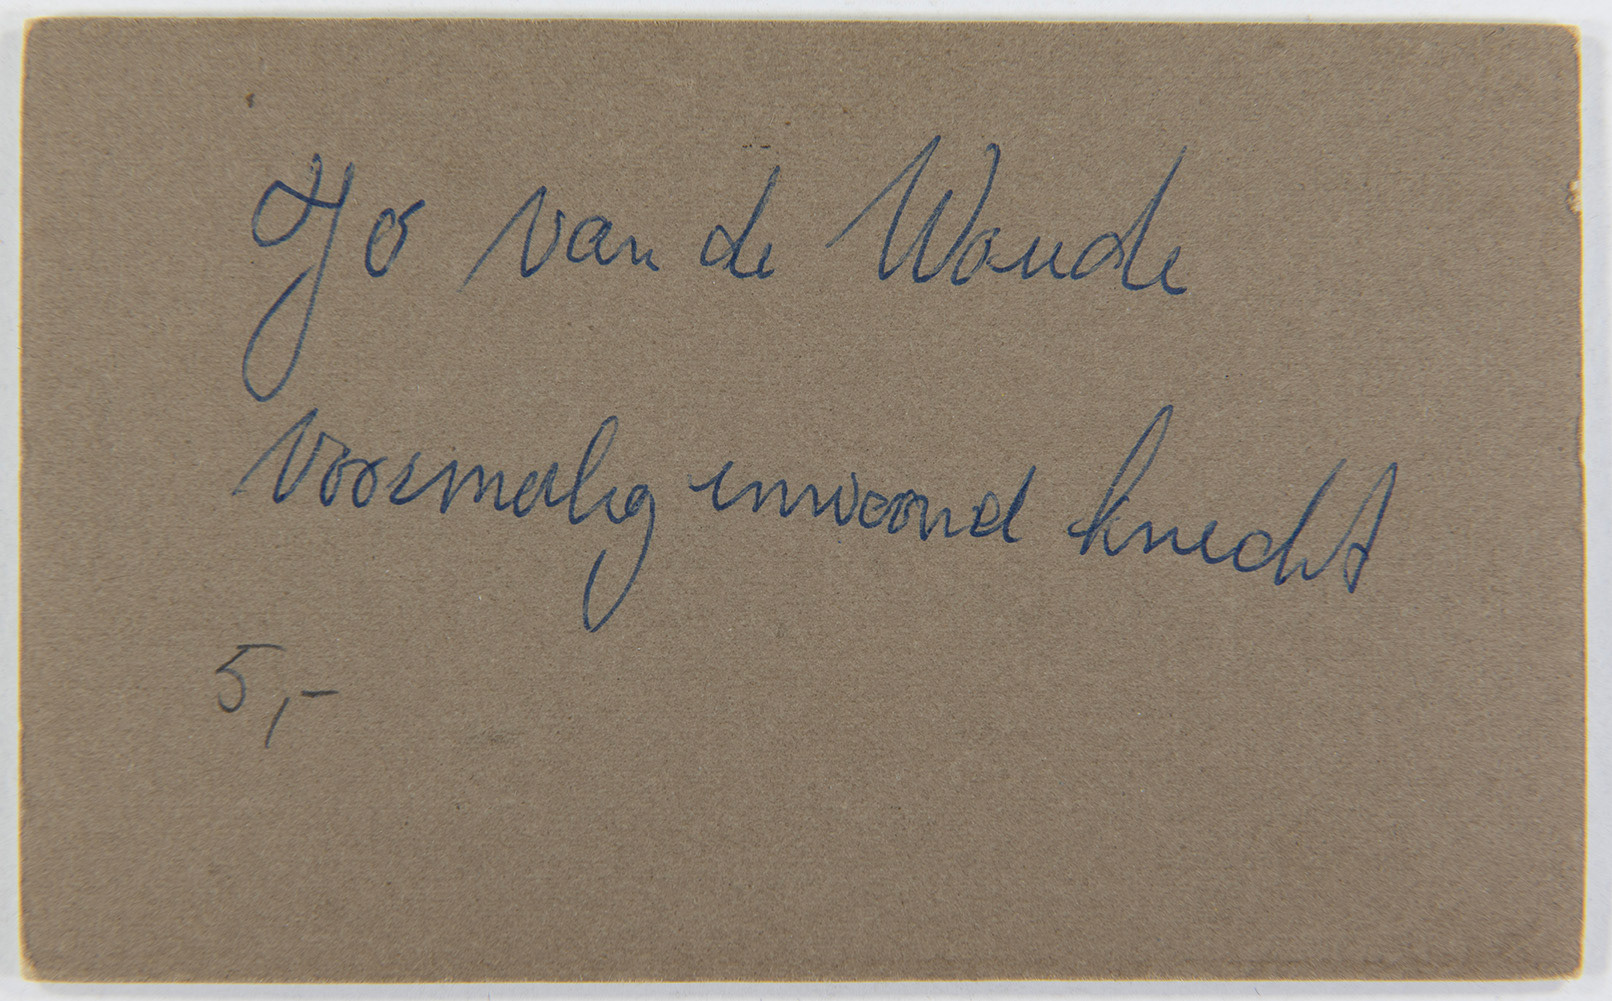 Jo van de Woude
voormalig inwoond knecht
5,-